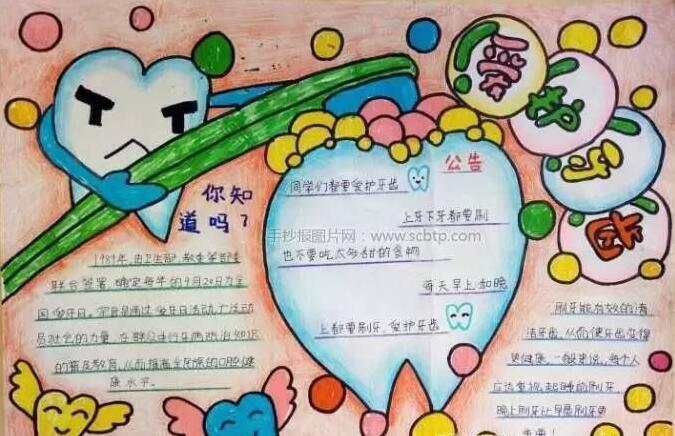 爱
护
牙
齿
你知
道吗？
1989年,由卫生部,教委等部委
联合签署,确定每年的9月20日为全
国爱牙日。宗旨是通过爱牙日活动广泛动
员社会的力量,在群众中行牙病防治知识
的普及教育,从而提高全民族的口腔健
康水平。
公告
同学们都要爱护牙齿
上牙下牙都要刷
手抄报图片网：www.scbtp.com
也不要吃太多甜的食物
每天早上和晚
上都要刷牙,爱护牙齿
刷牙能有效的清
洁牙齿,从而使牙齿变得
更健康,一般来说,每个人
应当重视起睡前刷牙,
晚上刷牙比早晨刷牙更
重要!